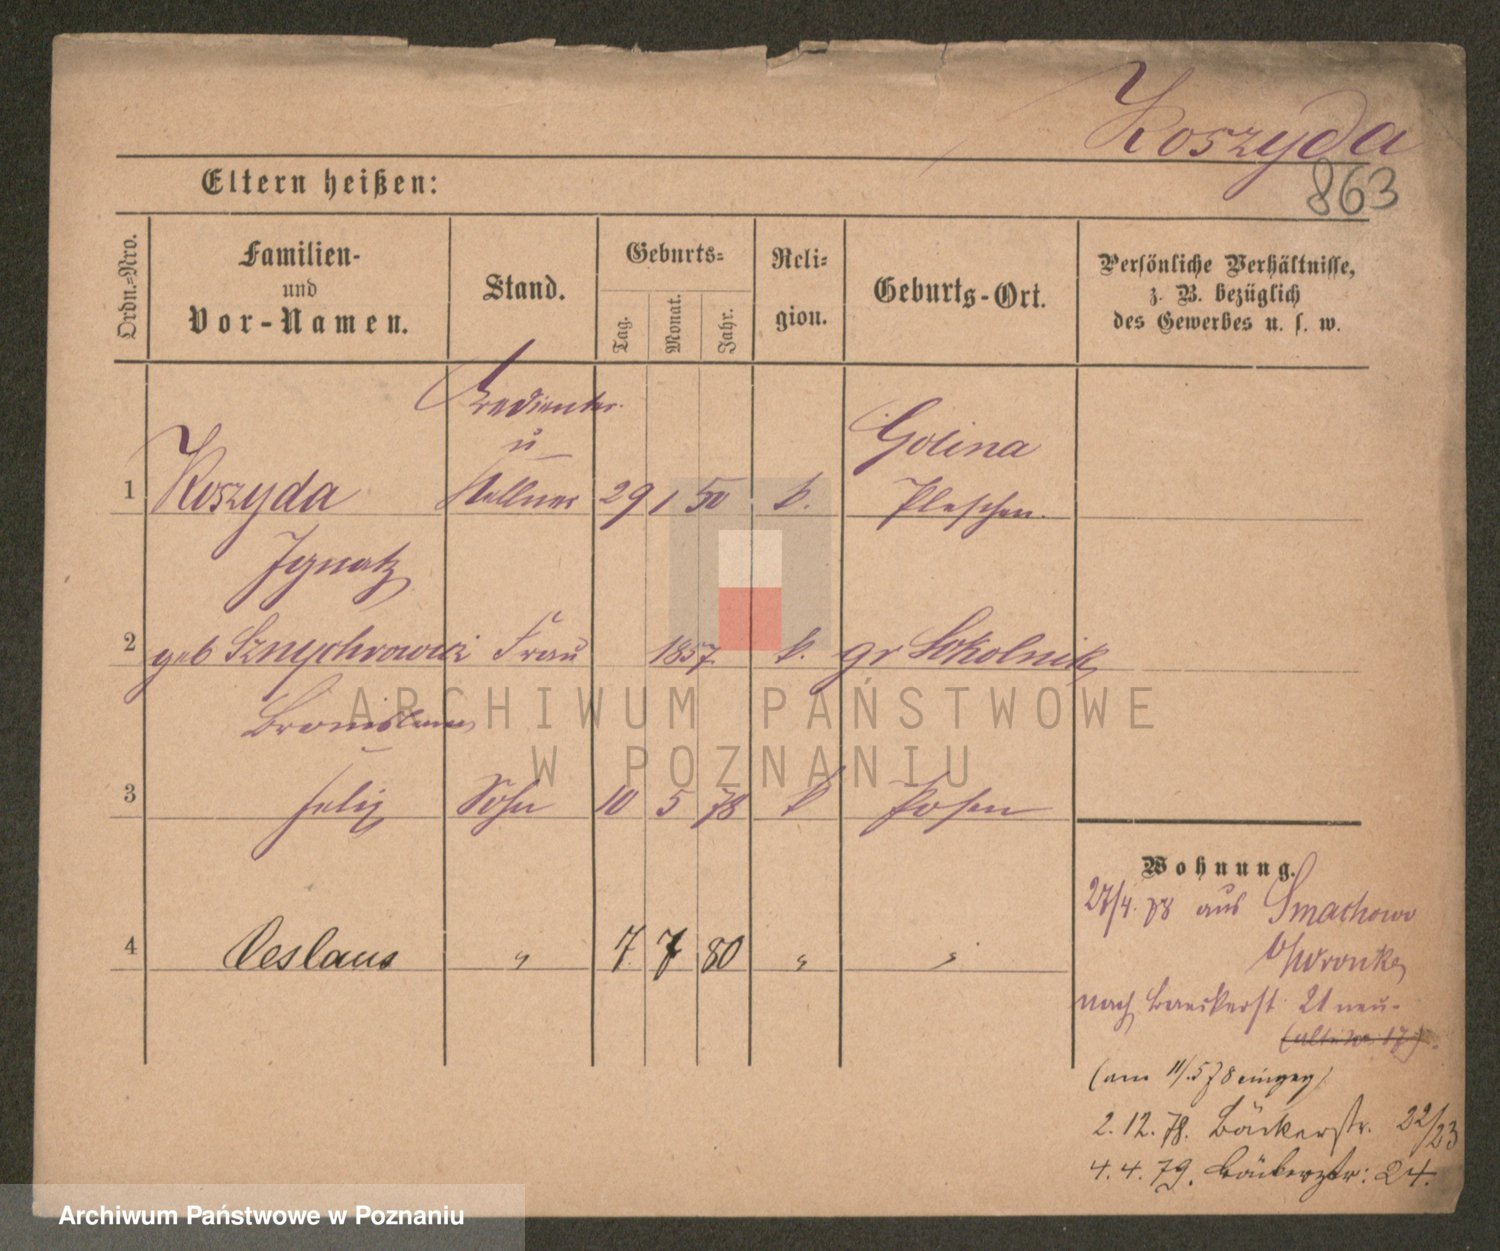 Koszyda
863
Eltern heißen:
Ordn.-Nro.
Familien-
und
Vor-Namen.
Stand.
Geburts-
Tag.
Monat.
Jahr.
Reli-
gion.
Geburts-Ort.
Persönliche Verhältnisse,
z. B. bezüglich
des Gewerbes u. s. w.
u
Golina
1 Koszyda Kellner 29 1 50 k. Pleschen.
Ignatz
2 geb Frau 1857 k. gr Sokolnik
Bronislawa
3 Felix Sohn 10 5 78 k Posen
4 Ceslaus " 7 7 80 " "
Wohnung.
27/4. 78 aus Smachowo
b/Wronke
nach Baeckerst 21 neu.
(alte No. 17).
(am 11/5 78 eingeg)
2. 12. 78. Bäckerstr. 22/23
4. 4. 79. Bäckerstr: 24.
ARCHIWUM PAŃSTWOWE
W POZNANIU
Archiwum Państwowe w Poznaniu